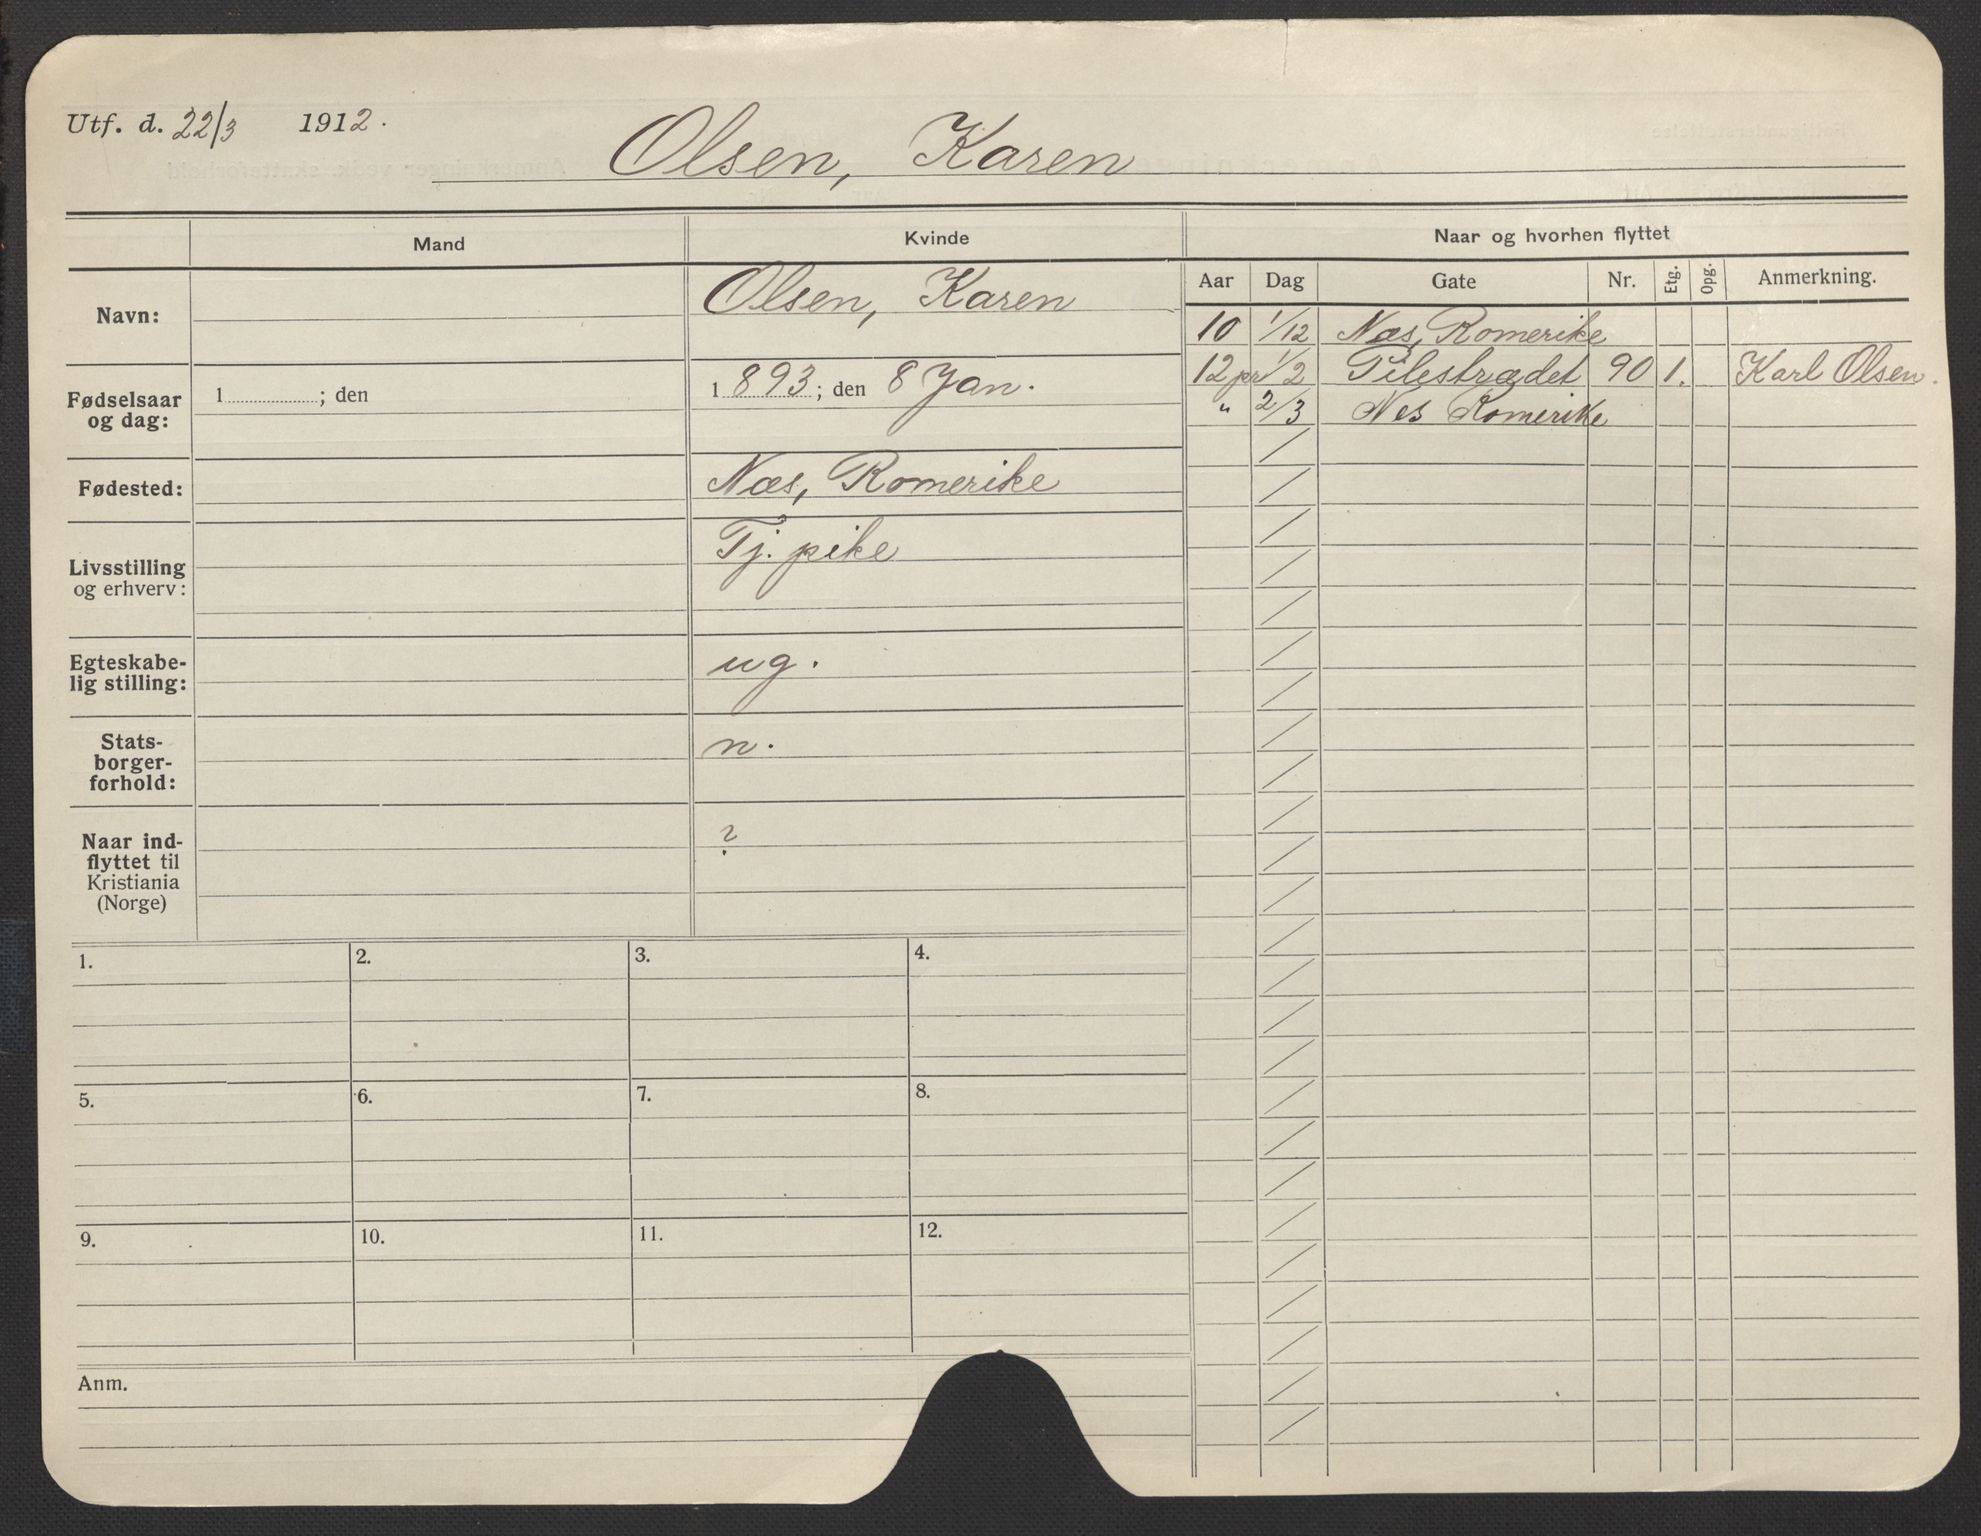 Utf. d. 22/3 1912.
Olsen, Karen
Mand
Kvinde
Naar og hvorhen flyttet
Aar Dag Gate Nr. Etg. Opg. Anmerkning.
Navn: Olsen, Karen
10 1/12 Næs, Romerike
12 pr 1/2 Pilestrædet 90 1. Karl Olsen.
" 2/3 Nes Romerike
Fødselsaar
og dag:
1 ; den
1 893 ; den 8 Jan.
Fødested: Næs, Romerike
Livsstilling
og erhverv:
Tj. pike
Egteskabe-
lig stilling:
ug.
Stats-
borger-
forhold:
n.
Naar ind-
flyttet til
Kristiania
(Norge)
?
1. 2. 3. 4.
5. 6. 7. 8.
9. 10. 11. 12.
Anm.